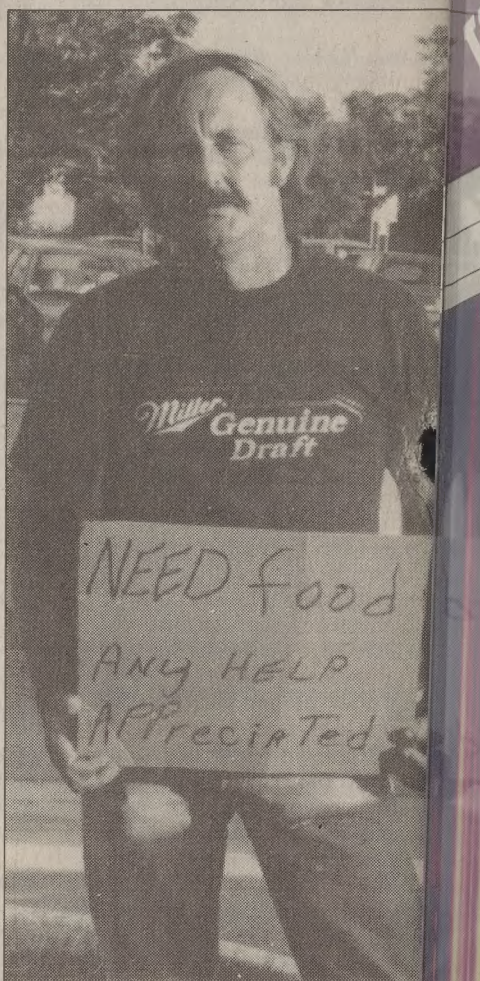 Miller
Genuine
Draft
NEED food
ANy HELP
APPreciaTed